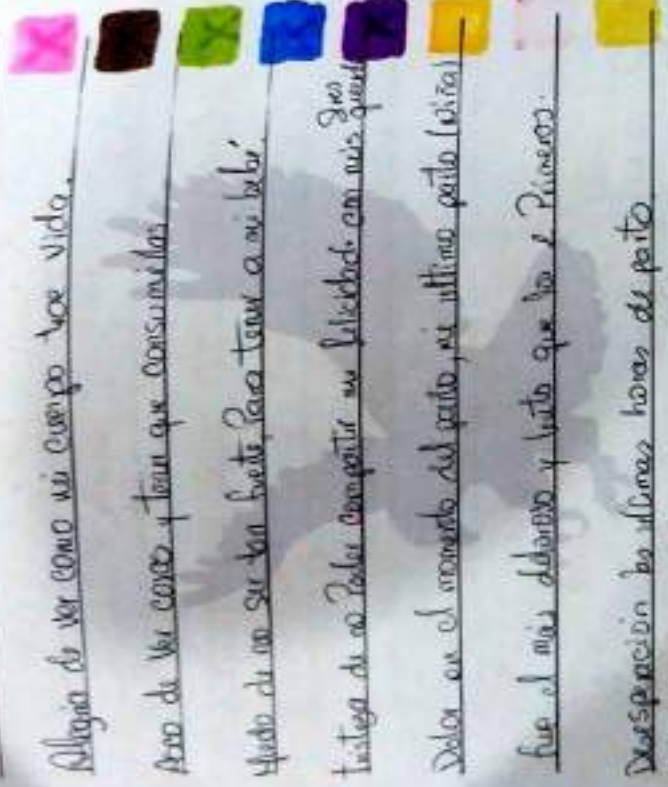 Alegria de ver como mi cuerpo trae vida.
Asco de ver cosas y tener que consumirlas
Miedo de no ser tan fuerte Para tener a mi bebé.
tristeza de no Poder compartir mi felicidad con mis seres queridos
Dolor en el momento del parto, mi ultimo parto (niña)
fue el más doloroso y lento que los 2 Primeros.
Desesperación las ultimas horas de parto